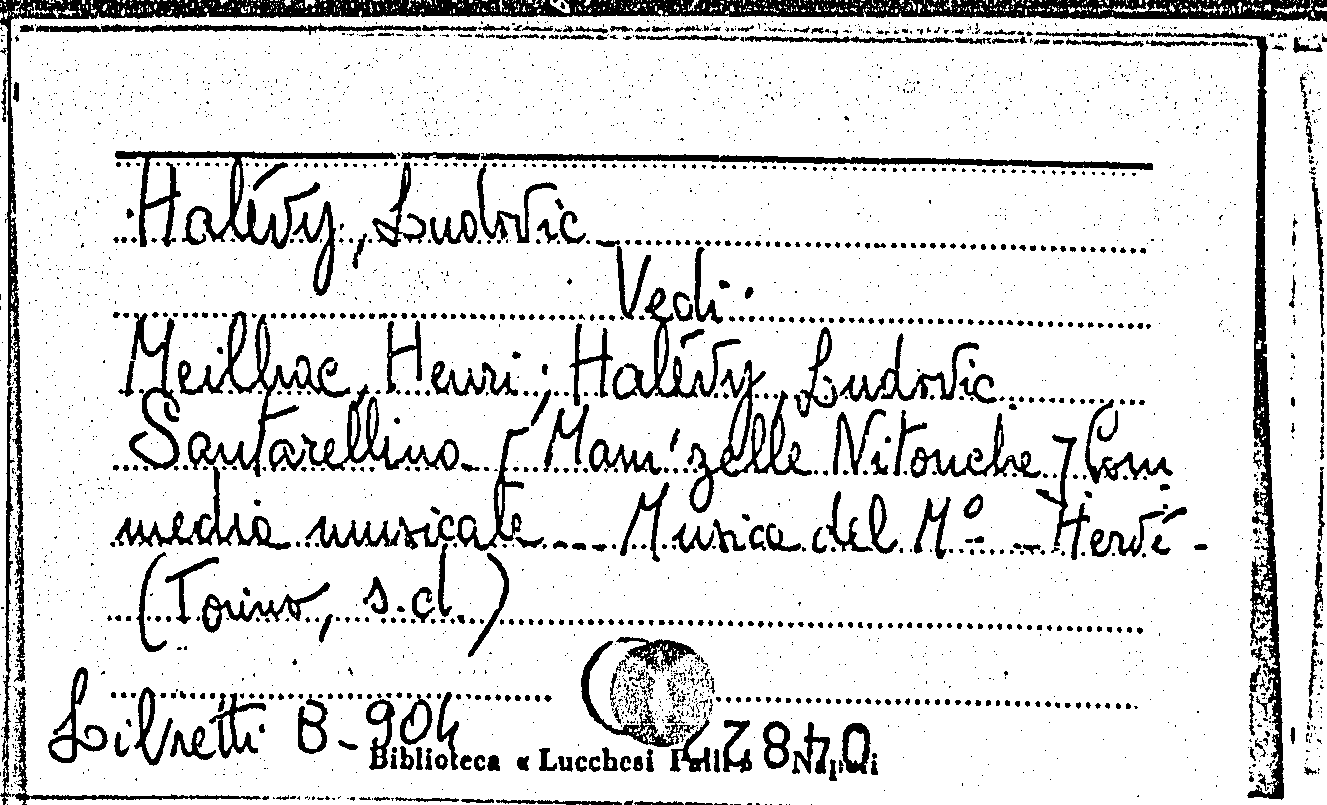 Halévy, Ludovic
Vedi:
Meilhac, Henri; Halévy, Ludovic
Santarellina [Mam'zelle Nitouche] Com
media musicale - Musica del Mº - Hervé -
(Torino, s.d.)
Libretti B-904
Biblioteca « Lucchesi Palli » Napoli